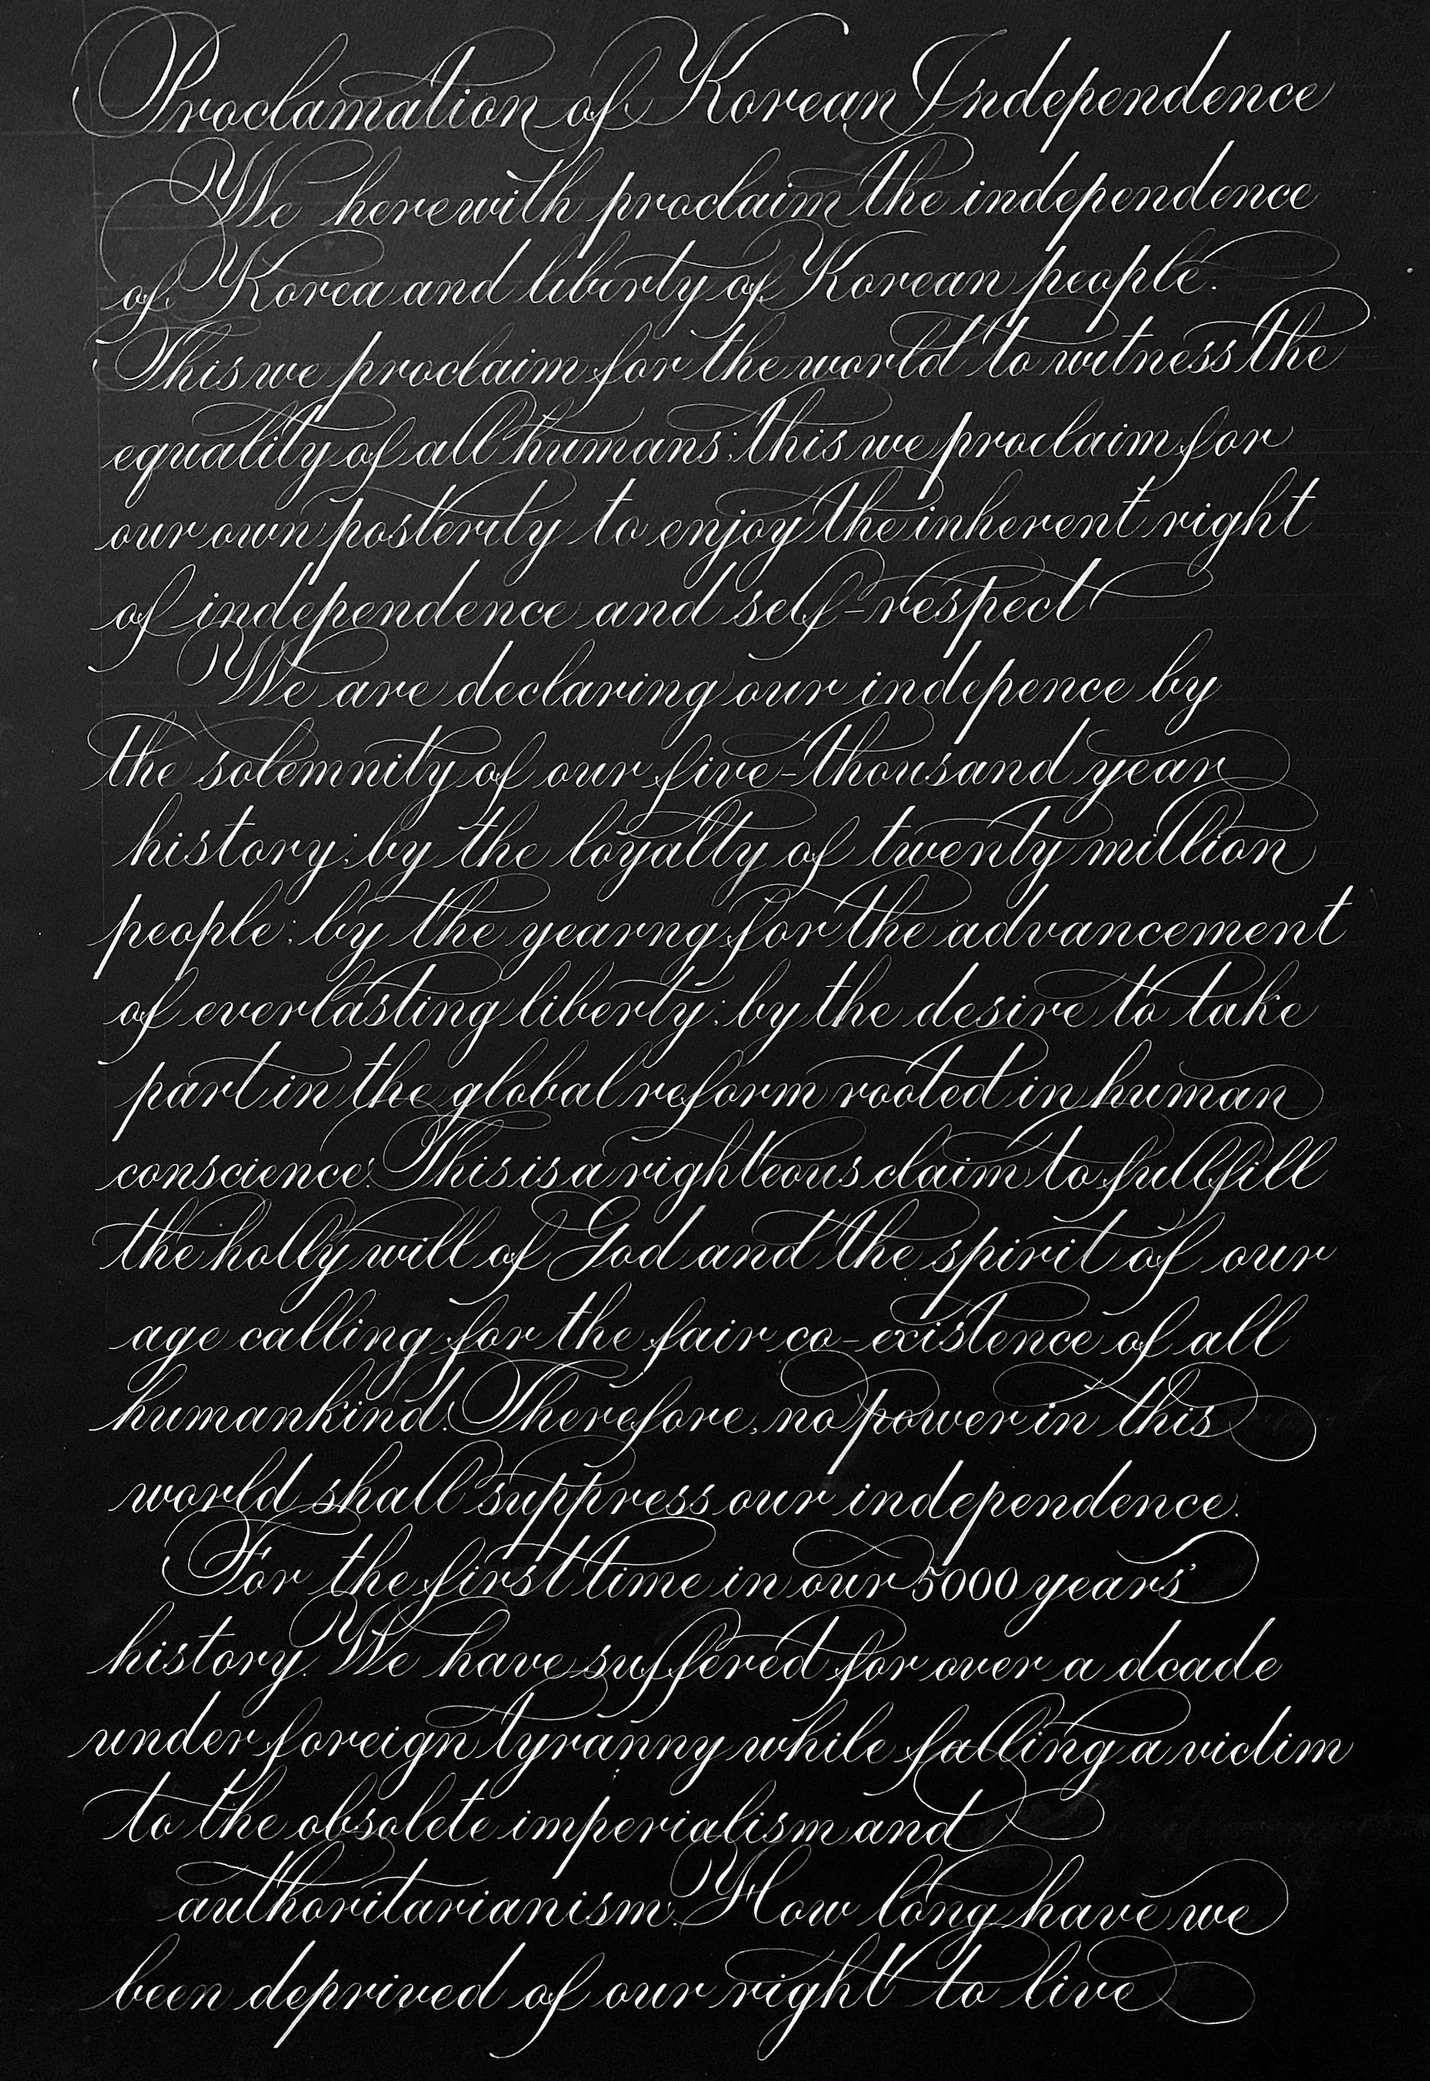 Proclamation of Korean Independence
We herewith proclaim the independence
of Korea and liberty of Korean people.
This we proclaim for the world to witness the
equality of all humans; this we proclaim for
our own posterity to enjoy the inherent right
of independence and self-respect
We are declaring our indepence by
the solemnity of our five-thousand year
history; by the loyalty of twenty million
people; by the yearng for the advancement
of everlasting liberty; by the desire to take
part in the global reform rooted in human
conscience. This is a righteous claim to fullfill
the holly will of God and the spirit of our
age calling for the fair co-existence of all
humankind. Therefore, no power in this
world shall suppress our independence.
For the first time in our 5000 years'
history. We have suffered for over a dcade
under foreign tyranny while falling a victim
to the obsolete imperialism and
authoritarianism. How long have we
been deprived of our right to live